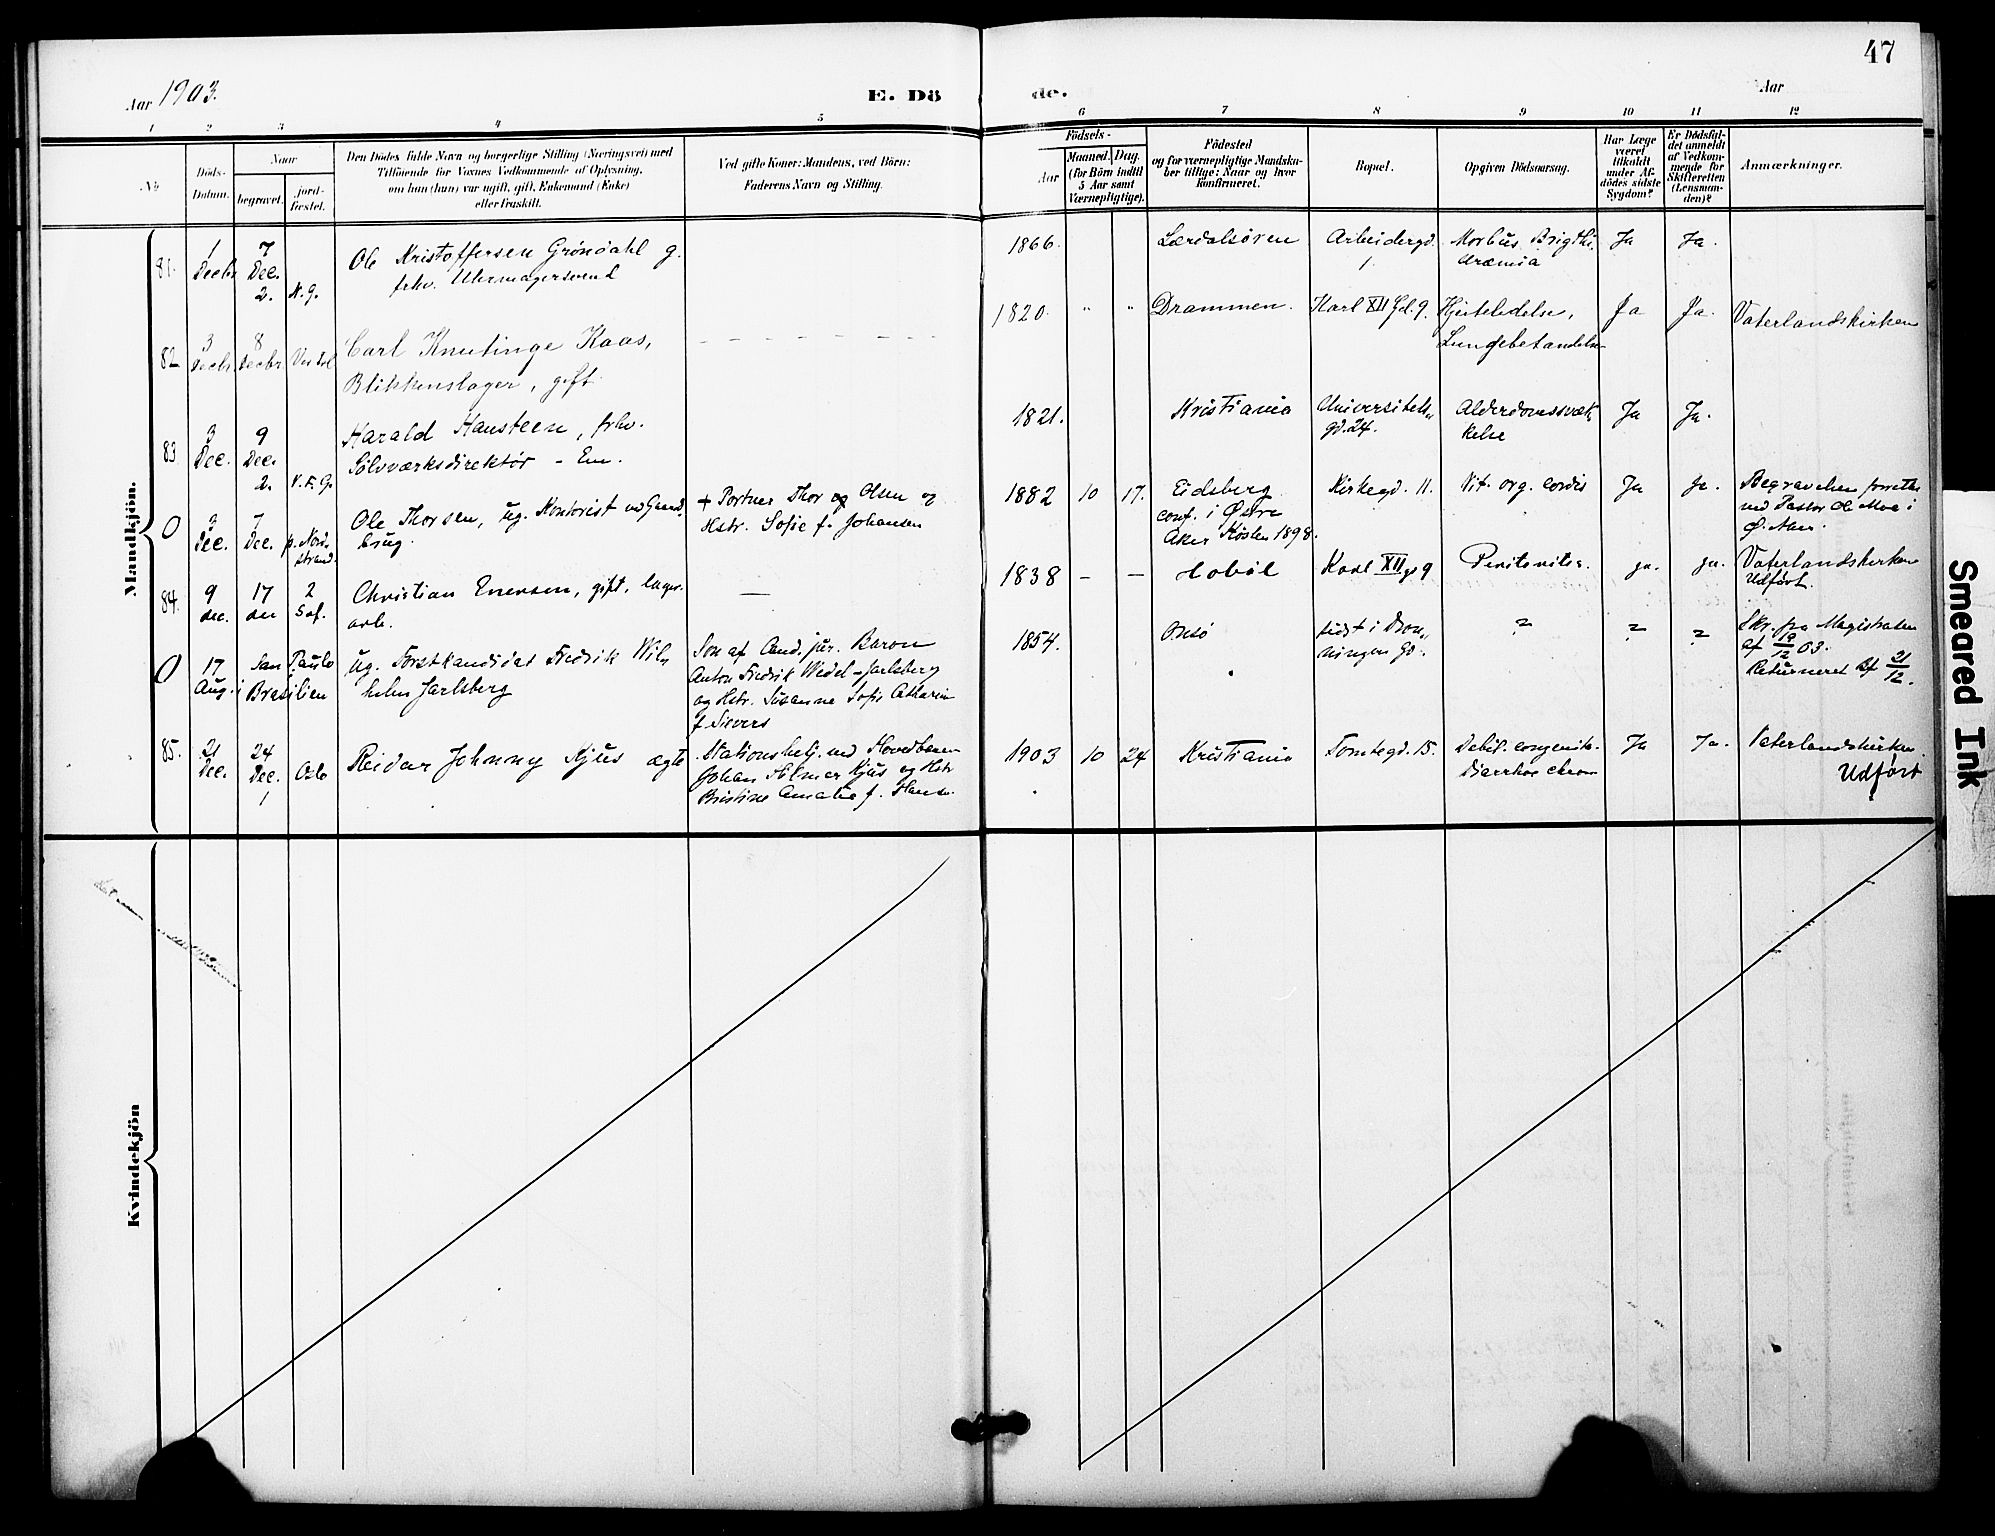 47
Aar 1903.
E. Dö
de.
Aar
1 2 3 4 5 6 7 8 9 10 11 12
No
Döds-
Datum.
Naar
begravet.
jord-
fæstet.
Den Dödes fulde Navn og borgerlige Stilling (Næringsvei) med
Tilföiende for Voxnes Vedkommende af Oplysning,
om han (hun) var ugift, gift, Enkemand (Enke)
eller fraskilt.
Ved gifte Koner: Mandens, ved Börn:
Faderens Navn og Stilling.
Födsels-
Aar
Maaned.
Dag.
(for Börn indtil
5 Aar samt
Værnepligtige).
Födested
og for værnepligtige Mandska-
ber tillige: Naar og hvor
konfirmeret.
Bopæl.
Opgiven Dödsaarsag.
Har Læge
været
tilkaldt
under Af-
dödes sidste
Sygdom?
Er Dödsfal-
det anmeldt
af Vedkom-
mende for
Skifteretten
(Lensman-
den)?
Anmærkninger.
Mandkjön.
81. 1 Decbr 7 Dec. 2. N. G.
Ole Kristoffersen Gröndahl g.
frhv. Uhrmagersvend
1866. Lærdalsören Arbeidergd. 1. Morbus Brigthi. Uræmia Ja Ja.
82 3 Decbr. 8 Decbr.
Carl Knutinge Kaas,
Blikkenslager, gift.
1820. " " Drammen. Karl XII Gd. 9. Hjertelidelse, Ja Ja. Vaterlandskirken
Lungebetændelse
83. 3 Dec. 9 Dec. 2. V. F. G.
Harald Hansteen, frhv.
Sölvværksdirektör - Em.
1821. Kristiania Universitets gd. 24. Alderdomssvæk kelse Ja Ja.
0 3 Dec. 7 Dec. p. Nord- strand.
Ole Thorsen, ug. Kontorist ved
brug.
+ Portner Thor Olsen og
Hstr. Sofie f. Johansen
1882 10 17. Eidsberg
conf. i Østre
Aker Hösten 1898.
Kirkegd. 11. Vit. org. cordis Ja Ja.
Begravelsen forrettet
ved Pastor Ole Moe i
Ø. Aker.
84. 9 dec. 17 2
Christian Enersen, gift, lager-
arb.
—
1838 – – Hobøl Karl XII g 9 Peritonitis. ja. ja. Vaterlandskirken
Udført.
0 17 Aug. San Paulo
i Brasilien
Ug. Forstkandidat Fredrik Wil-
helm Jarlsberg
Søn af Cand. jur. Baron
Anton Fredrik Wedel-Jarlsberg
og Hstr. Susanne Sofie Catharine
f. Sievers
1854. sidst i Dron-
ningens Gd. ? ? ?
Skr. fra Magistraten
af 19/12 03.
Returneret af 21/12.
85. 21 Dec. 24 Dec. 1 Oslo
Reidar Johnny Kjus ægte
Stationsbetj. ved Hovedbanen
Johan Hilmar Kjus og Hstr.
f. Hansen.
1903 10 24 Kristiania Tomtegd. 15. Debil. congenita. Ja Ja. Vaterlandskirken.
Diarrhoe chron
Udført
Kvindekjön
Smeared Ink